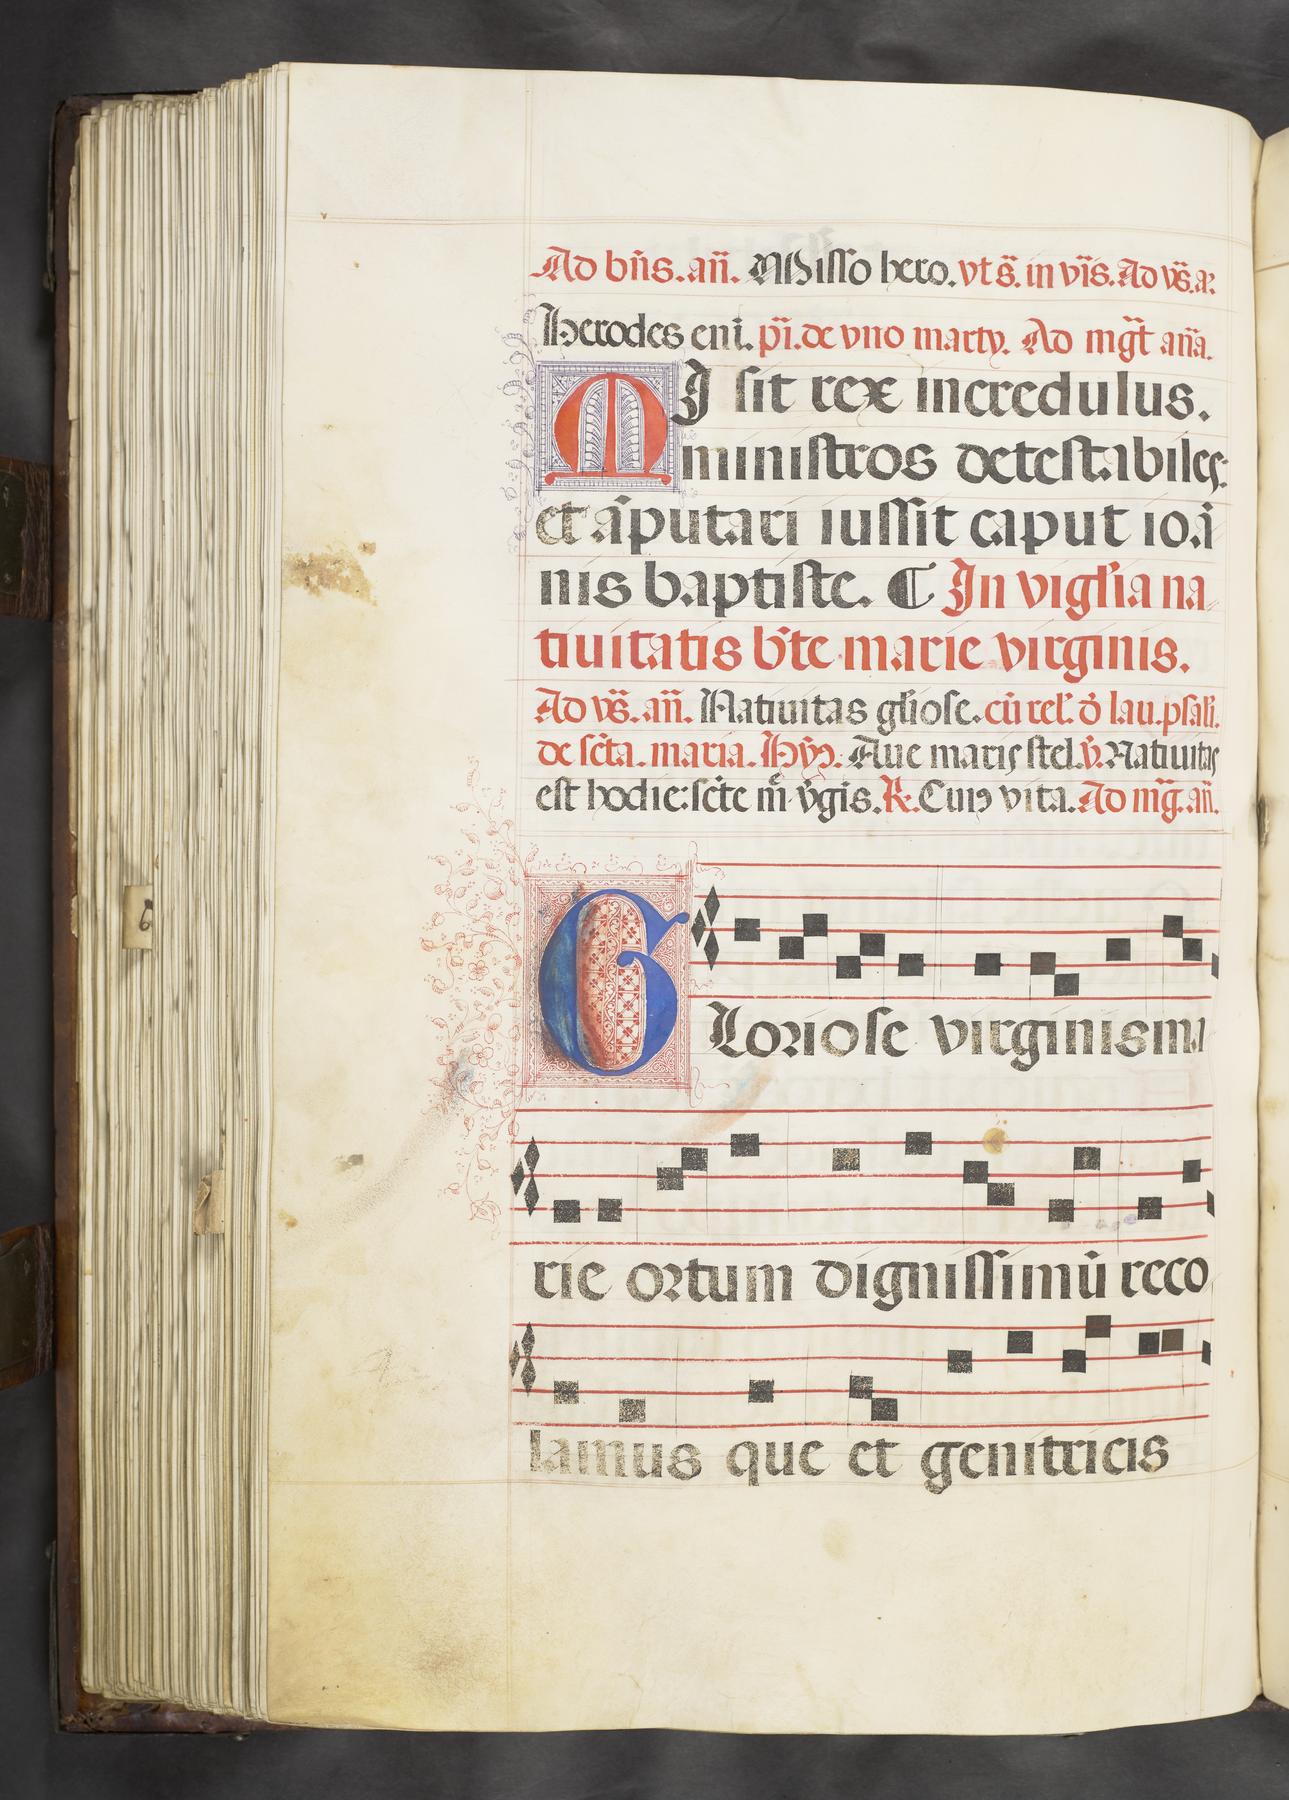 Ad bn̄s. an̄. Misso hero. vt s̄. in vr̄s. Ad vs̄. a.
Herodes eni. pi. de vno marty. Ad mgt̄ an̄a.
MJ sit rex incredulus.
ministros detestabiles:
et āputari iussit caput ioā
nis baptiste. ¶ In vigl'ia na
tiuitatis b'te marie virginis.
Ad vs̄. an̄. Natiuitas gl'iose. cū rel'. d' lau. psal'.
de sc̄ta. maria. Hyɱ. Aue maris stel. v̄. Natiuitas
est hodie: sc̄te m̄ v̄gis. R. Cuiꝰ vita. Ad mḡ. an̄.
Gloriose virginis ma
rie ortum dignissimū reco
lamus que et genitricis
6